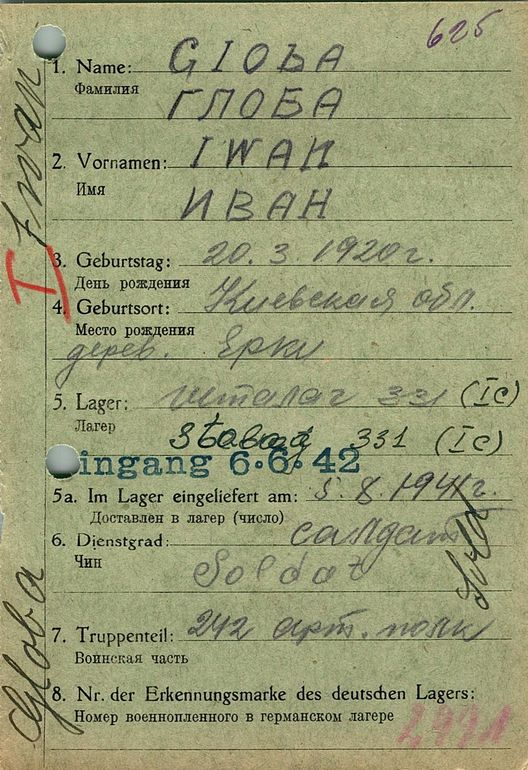 625
1. Name: GIOBA
Фамилия
ГЛОБА
2. Vornamen: IWAN
Имя
ИВАН
3. Geburtstag: 20.3.1920г.
День рождения
4. Geburtsort: Киевская обл.
Место рождения
дерев. Ерки
5. Lager: шталаг 331 (IC)
Лагер
Stalag 331 (IC)
Eingang 6.6.42
5a. Im Lager eingeliefert am: 5.8.1941г.
Доставлен в лагер (число)
6. Dienstgrad: салдат
Чин
Soldat
7. Truppenteil: 242 арт. полк
Воинская часть
8. Nr. der Erkennungsmarke des deutschen Lagers:
Номер военнопленного в германском лагере
Globa
Iwan
I